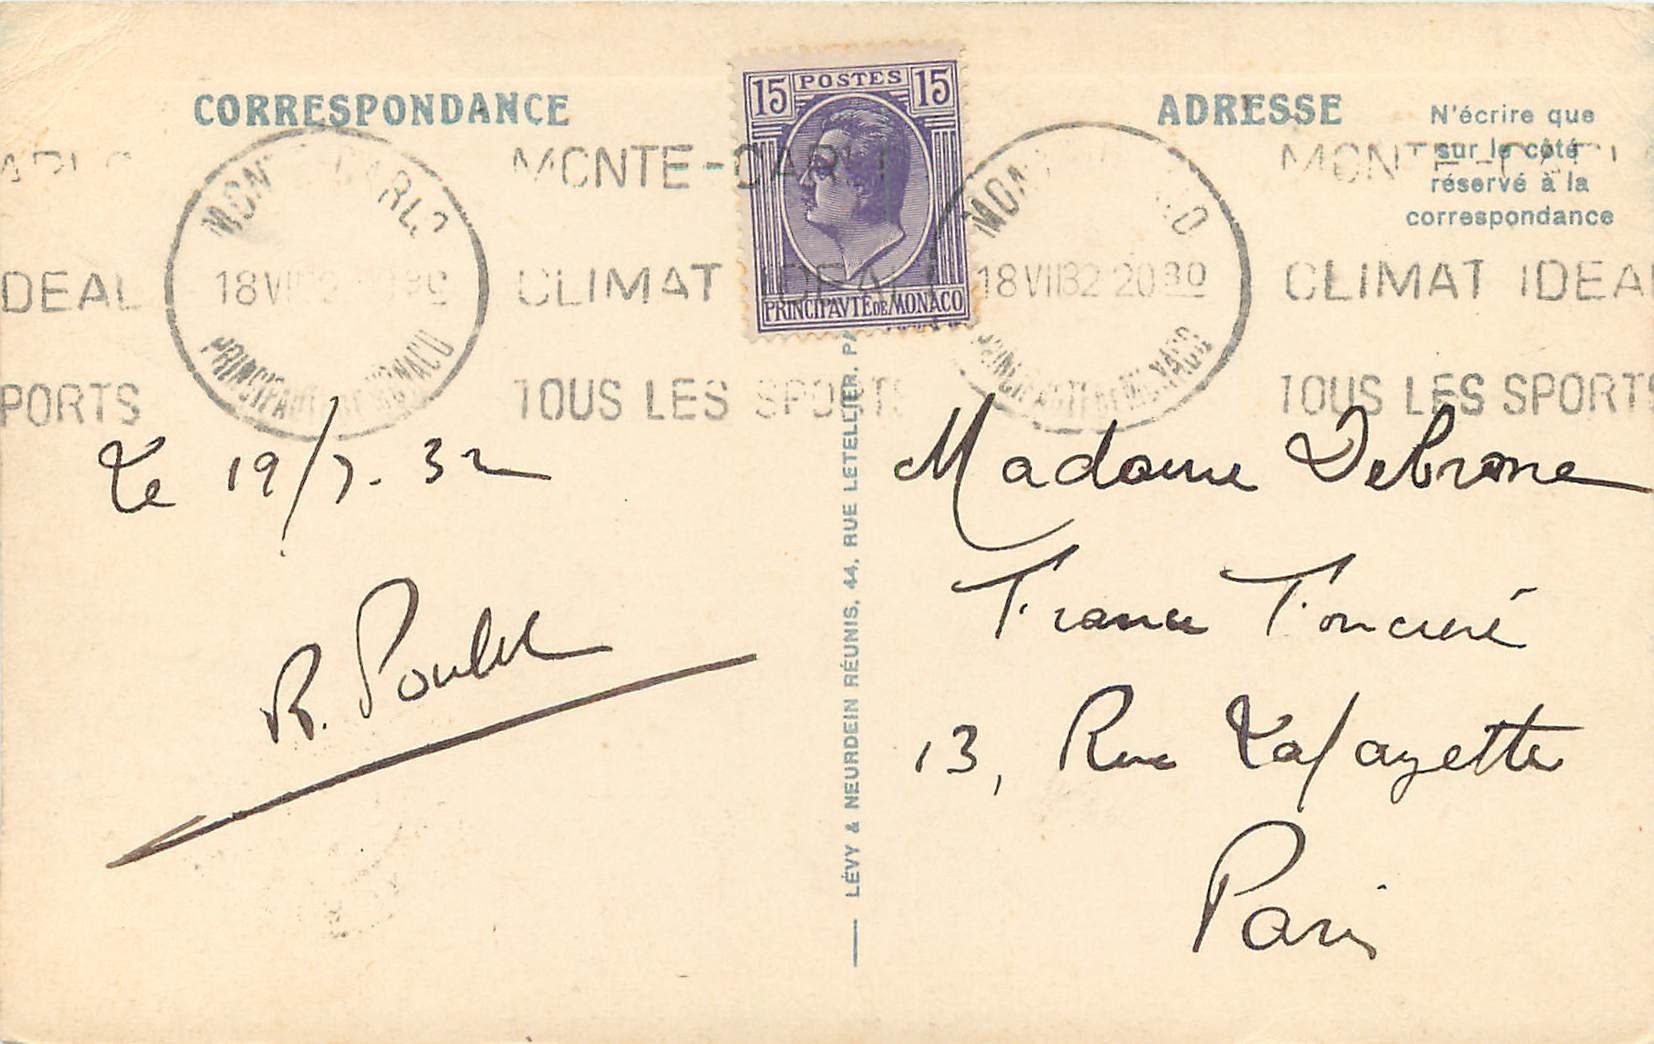 CORRESPONDANCE
ADRESSE
N'écrire que
sur le côté
réservé à la
correspondance
15 POSTES 15
PRINCIPAVTE DE MONACO
MONTE-CARLO
18 VII 32 20 30
PRINCIPAUTE DE MONACO
MONTE-CARLO
CLIMAT IDEAL
TOUS LES SPORTS
MONTE-CARLO
18 VII 32 20 30
PRINCIPAUTE DE MONACO
MONTE-CARLO
CLIMAT IDEAL
TOUS LES SPORTS
ARLO
DEAL
PORTS
Le 19/7. 32
R. Poulet
LÉVY & NEURDEIN RÉUNIS, 44, RUE LETELLIER, PA
Madame Debrone
France Foncière
13, Rue Lafayette
Paris